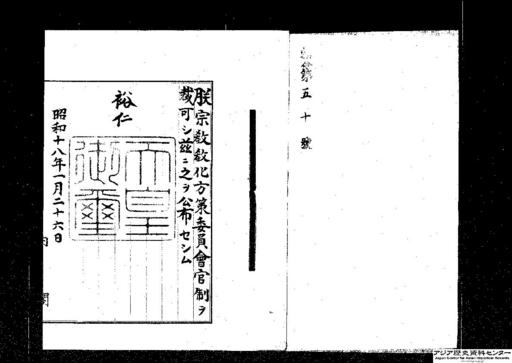 勅令第五十號
朕宗教教化方策委員會官制ヲ
裁可シ茲ニ之ヲ公布セシム
裕仁
天皇御璽
昭和十八年一月二十六日
内閣
アジア歴史資料センター
Japan Center for Asian Historical Records